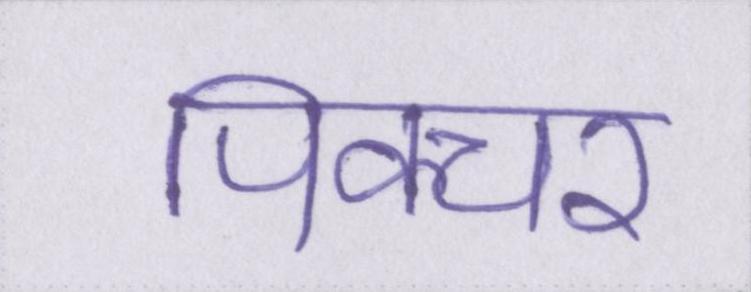 पिक्चर